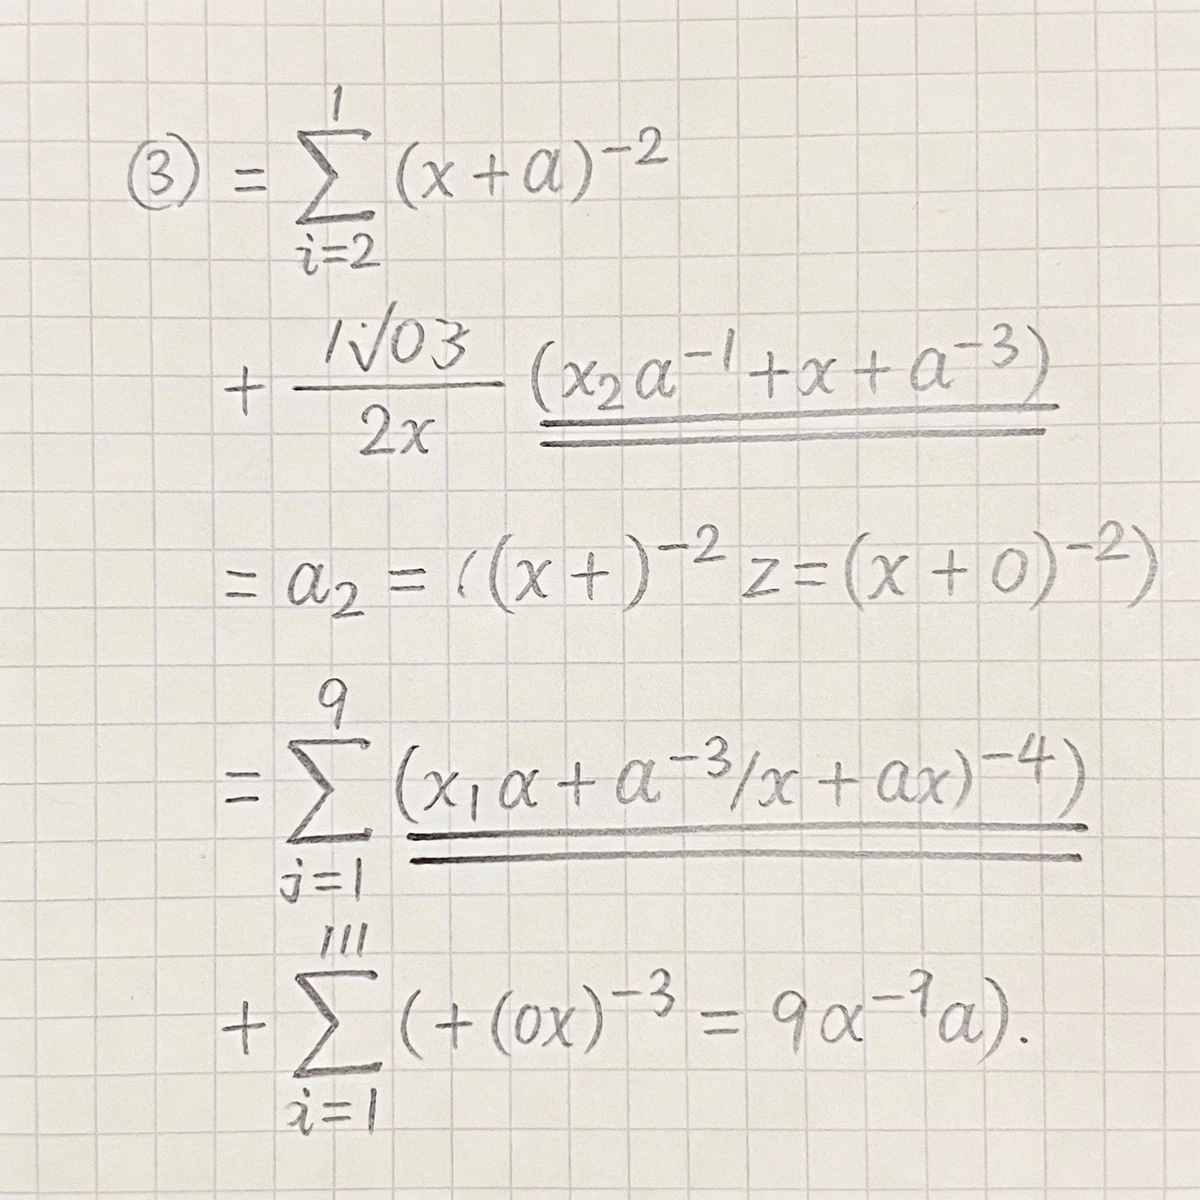 ③ = ∑_{i=2}^{1} (x + a)^{-2}
+ \frac{1i√03}{2x} (x_2 a^{-1} + x + a^{-3})
= a_2 = ((x + )^{-2} z = (x + 0)^{-2})
= ∑_{j=1}^{9} (x_1 α + a^{-3}/x + ax)^{-4})
+ ∑_{i=1}^{111} ( + (0x)^{-3} = 9α^{-9}a).